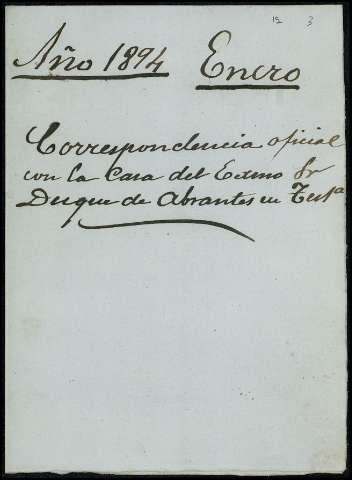 12 3
Año 1894 Enero
Correspondencia oficial
con la Casa del Exmo Sr
Duque de Abrantes en Test.ª